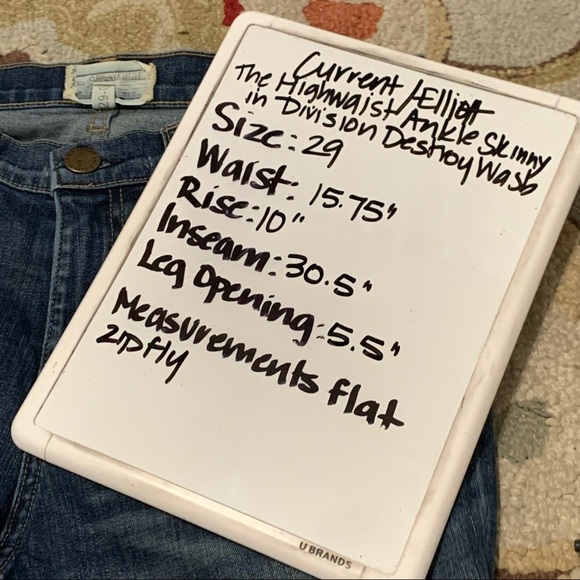 CURRENT/ELLIOTT
29
Current/Elliott
The Highwaist Ankle Skinny
in Division Destroy Wash
Size: 29
Waist: 15.75"
Rise: 10"
Inseam: 30.5"
Leg Opening: 5.5"
Measurements flat
zip fly
U BRANDS